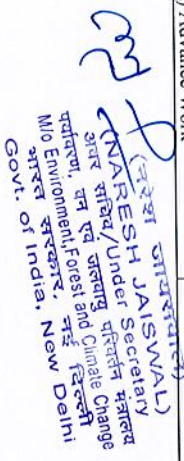 (नरेश जायसवाल)
(NARESH JAISWAL)
अवर सचिव/Under Secretary
पर्यावरण, वन एवं जलवायु परिवर्तन मंत्रालय
M/o Environment,Forest and Climate Change
भारत सरकार, नई दिल्ली
Govt. of India, New Delhi